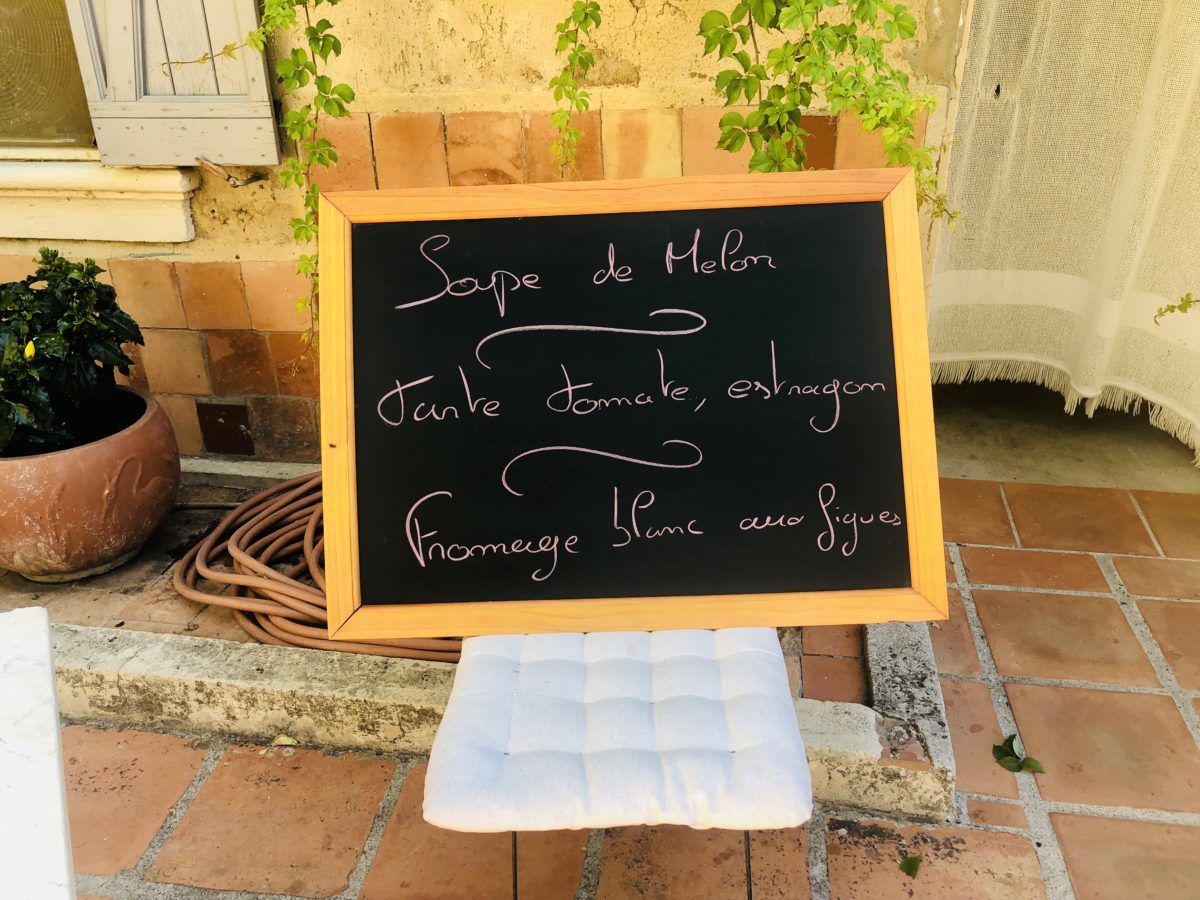 Soupe de Melon
Tarte tomate, estragon
Fromage blanc aux figues